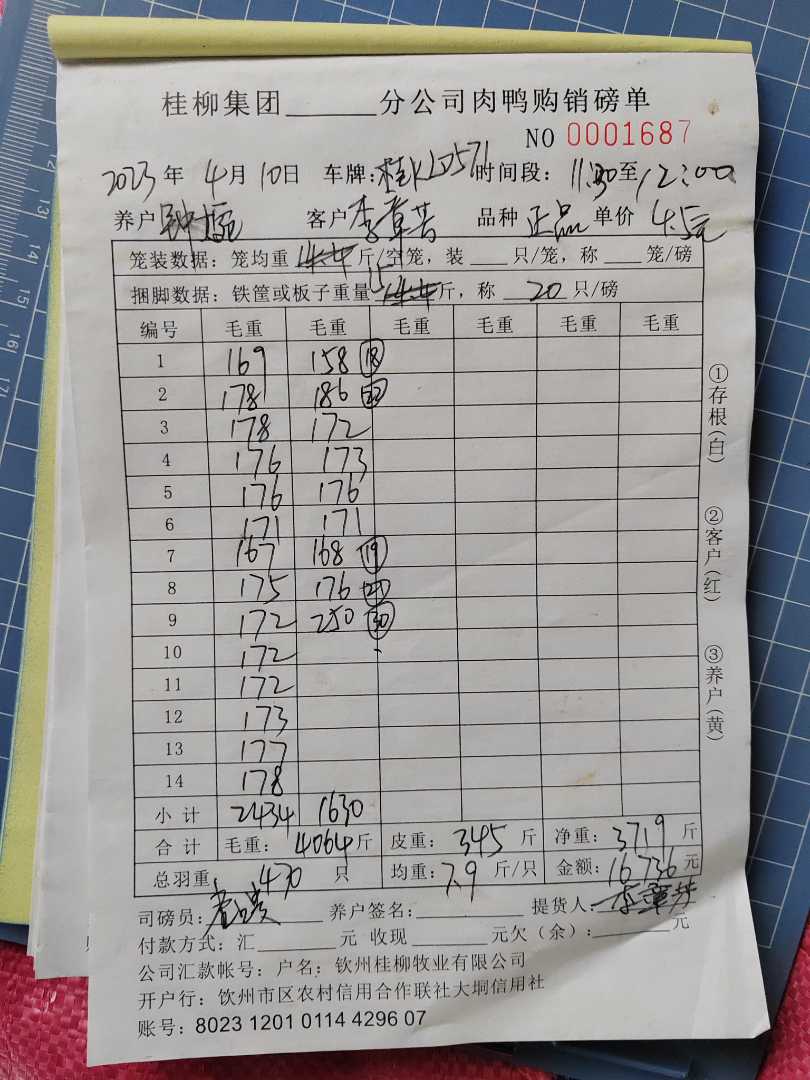 桂柳集团______分公司肉鸭购销磅单
NO 0001687
2023年 4月 10日 车牌:桂K 时间段: 11:30至12:00
养户 钟 客户 李章芳 品种 正品 单价 4.5元
笼装数据: 笼均重 斤/空笼, 装 ___ 只/笼, 称 ___ 笼/磅
捆脚数据: 铁筐或板子重量 15 斤, 称 20 只/磅
编号 毛重 毛重 毛重 毛重 毛重 毛重
1 169 158 ⑱
2 178 186 ㉒
3 178 172
4 176 173
5 176 176
6 171 171
7 167 168 ⑲
8 175 176 ㉑
9 172 250 ㉚
10 172
11 172
12 173
13 177
14 178
小计 2434 1630
合计 毛重: 4064斤 皮重: 345斤 净重: 3719斤
总羽重: 470 只 均重: 7.9 斤/只 金额: 16736元
司磅员: 养户签名:________ 提货人: 李章芳
付款方式: 汇________元 收现________元欠(余):________元
公司汇款帐号: 户名: 钦州桂柳牧业有限公司
开户行: 饮州市区农村信用合作联社大垌信用社
账号: 8023 1201 0114 4296 07
①存根(白)
②客户(红)
③养户(黄)